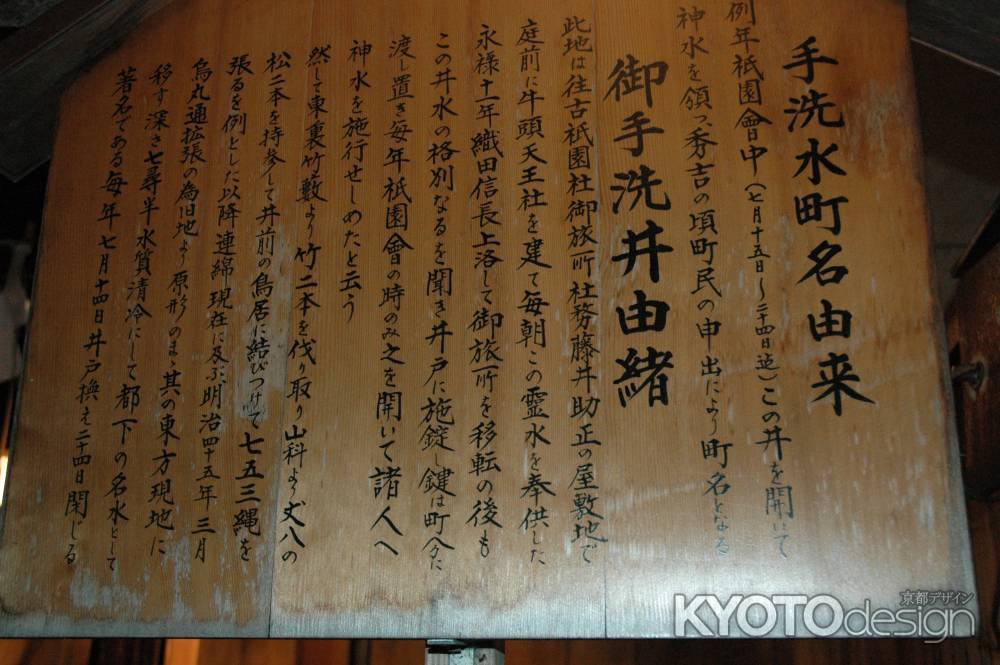 手洗水町名由来
例年祇園會中(七月十五日～二十四日迄)この井を開いて
神水を領つ、秀吉の頃町民の申出により町名となる
御手洗井由緒
此地は往古祇園社御旅所社務藤井助正の屋敷地で
庭前に牛頭天王社を建て毎朝この霊水を奉供した
永禄十一年織田信長上洛して御旅所を移転の後も
この井水の格別なるを聞き井戸に施錠し鍵は町分に
渡し置き毎年祇園會の時のみ之を開いて諸人へ
神水を施行せしめたと云う
然して東裏竹藪より竹二本を伐り取り山科より丈八の
松二本を持参して井前の鳥居に結びつけて七五三縄を
張るを例とした以降連綿現在に及ぶ明治四十五年三月
烏丸通拡張の為旧地より原形のまゝ其の東方現地に
移す深さ七尋半水質清冷にして都下の名水として
著名である毎年七月十四日井戸換え二十四日閉じる
KYOTOdesign
京都デザイン